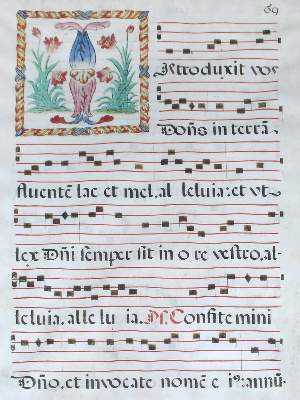 69
Introduxit vos
Dōns in terrā
fluentē lac et mel, al leluia: et vt-
lex Dn̄i semper sit in o re vestro, al-
leluia, alle lu ia. Ps. Confite mini
Dn̄o, et invocate nomē e i9: annū-